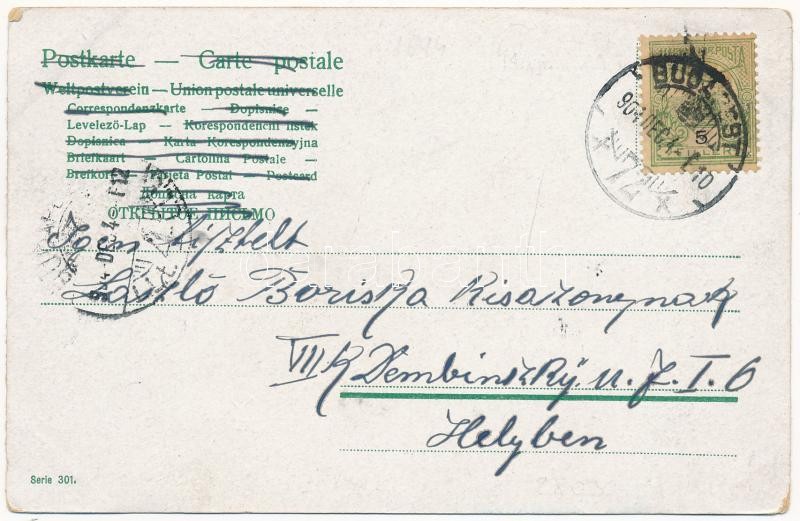 Postkarte — Carte postale
Weltpostverein — Union postale universelle
Correspondenzkarte — Dopisnice —
Levelező-Lap — Korespondenční lístek
Dopisnica — Karta Korespondenzyjna
Briefkaart — Cartolina Postale —
Brefkort — Tarjeta Postal — Postcard
Карта
ОТКРЫТОЕ ПИСЬМО
POSTA
5
BUDAPEST
904 DEC
72
Tisztelt
László Boriska Kisazonynak
VII K Dembinszky. u. 7. I. 6
Helyben
Serie 301.
darabanth